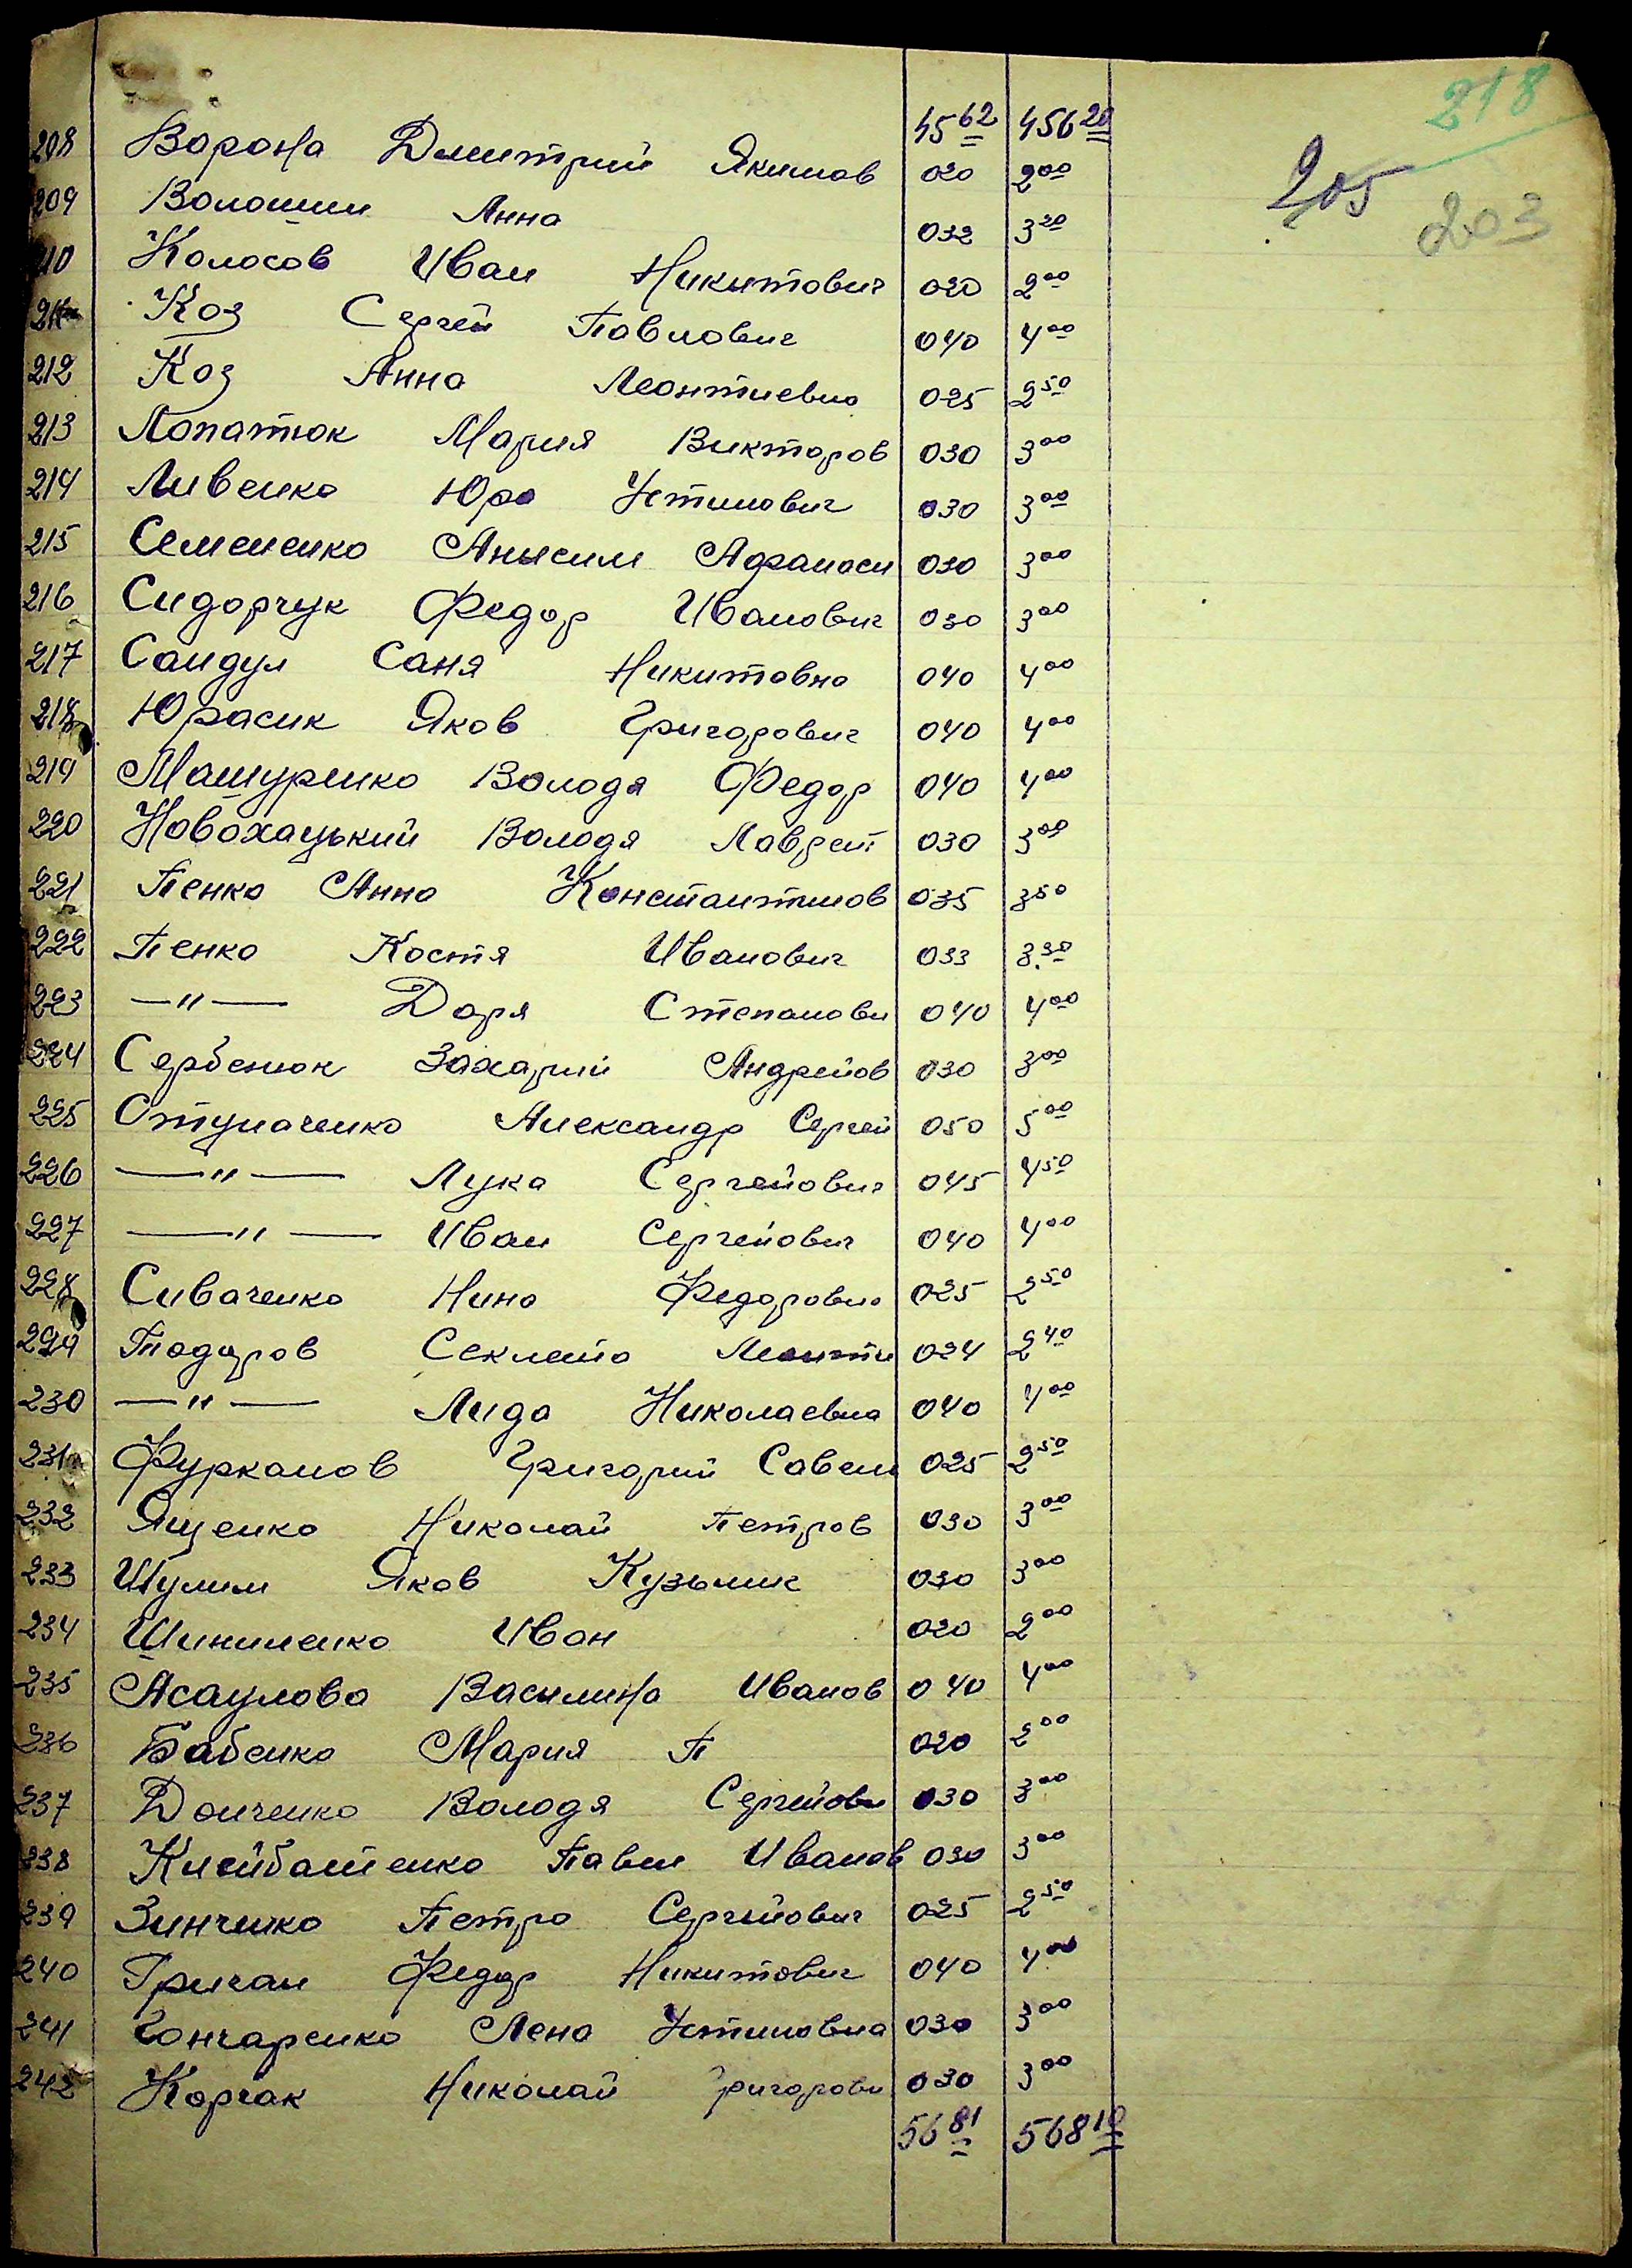 218
205
203
45 62 456 20
208 Ворона Дмитрий Якимов 020 2 00
209 Волошин Анна 032 3 20
210 Колосов Иван Никитович 020 2 00
211 Коз Сергей Павлович 040 4 00
212 Коз Анна Леонтиевна 025 2 50
213 Лопатюк Мария Викторов 030 3 00
214 Ливенко Юра Устинович 030 3 00
215 Семененко Анысим Афанаси 030 3 00
216 Сидорчук Федор Иванович 030 3 00
217 Сандул Саня Никитовна 040 4 00
218 Юрасик Яков Григорович 040 4 00
219 Машуренко Володя Федор 040 4 00
220 Новохацький Володя Лаврент 030 3 00
221 Пенко Анна Константинов 035 3 50
222 Пенко Костя Иванович 033 3 30
223 —"— Даря Степанови 040 4 00
224 Сербенюк Захарий Андрейов 030 3 00
225 Отупаченко Александр Сергей 050 5 00
226 —"— Лука Сергейович 045 4 50
227 —"— Иван Сергейович 040 4 00
228 Сиваченко Нина Федоровна 025 2 50
229 Тодоров Секлета Леонти 024 2 40
230 —"— Лида Николаевна 040 4 00
231 Фурканов Григорий Савели 025 2 50
232 Ященко Николай Петров 030 3 00
233 Шулим Яков Кузьмич 030 3 00
234 Шиниленко Иван 020 2 00
235 Асаулова Василина Иванов 040 4 00
236 Бабенко Мария П 020 2 00
237 Донченко Володя Сергейови 030 3 00
238 Клейбатенко Павел Иванов 030 3 00
239 Зинченко Петро Сергейович 025 2 50
240 Григан Федор Никитович 040 4 00
241 Гончаренко Лена Устиновна 030 3 00
242 Корчак Николай Григорови 030 3 00
56 81 568 10